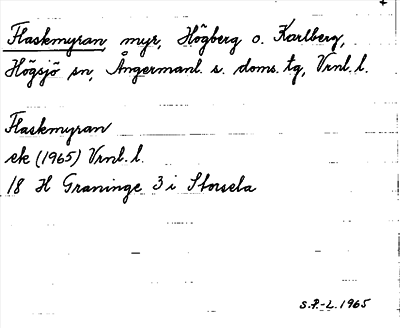 Flaskmyran myr, Högberg o. Karlberg,
Högsjö sn, Ångermanl. s. doms. tg, Vrnl. l.
Flaskmyran
ek (1965) Vrnl. l.
18 H Graninge 3 i Storsela
S.P.-L. 1965